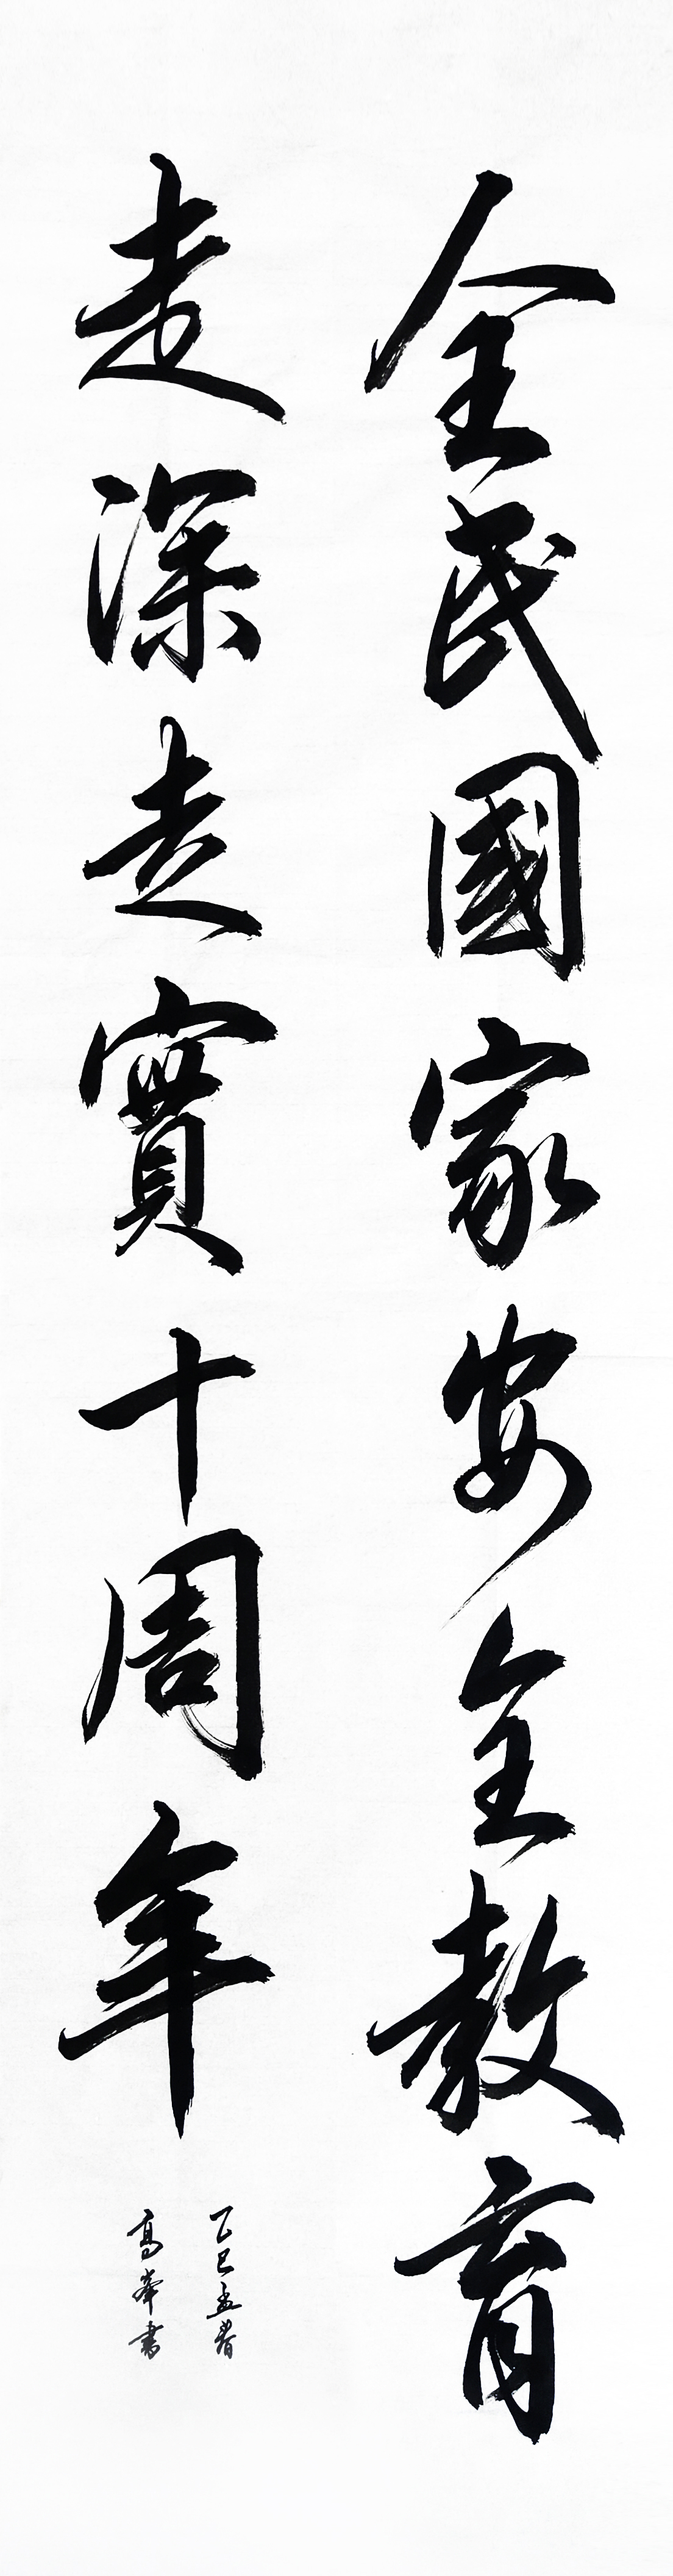 全民國家安全教育
走深走實十周年
乙巳孟春
高峰書